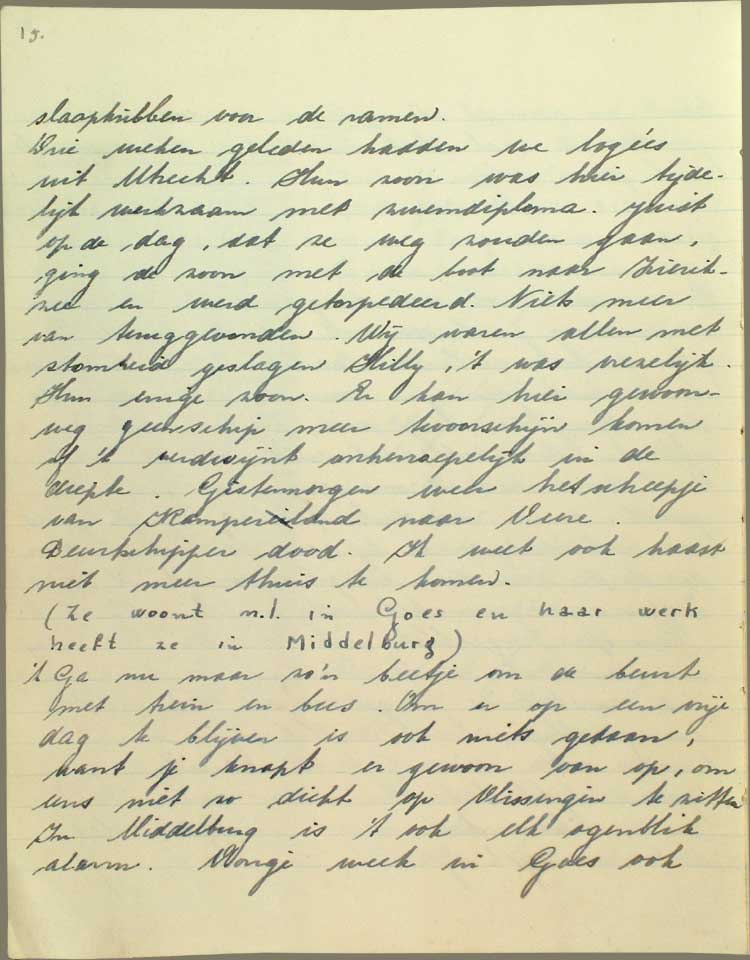 15.
slaapkribben voor de ramen.
Drie weken geleden hadden we logées
uit Utrecht. Hun zoon was hier tijde-
lijk werkzaam met zwemdiploma. Juist
op de dag, dat ze weg zouden gaan,
ging de zoon met de boot naar Zierik-
zee en werd getorpedeerd. Niets meer
van teruggevonden. Wij waren allen met
stomheid geslagen Hilly, 't was vreselijk.
Hun enige zoon. Er kan hier gewoon-
weg geen schip meer tevoorschijn komen
of 't verdwijnt onherroepelijk in de
diepte. Gistermorgen weer het scheepje
van Kampereiland naar Veere.
Beurtschipper dood. Ik weet ook haast
niet meer thuis te komen.
(Ze woont n.l. in Goes en haar werk
heeft ze in Middelburg)
'k Ga nu maar zo'n beetje om de beurt
met trein en bus. Om er op een vrije
dag te blijven is ook niets gedaan,
want je knapt er gewoon van op, om
eens niet zo dicht op Vlissingen te zitten
In Middelburg is 't ook elk ogenblik
alarm. Vorige week in Goes ook